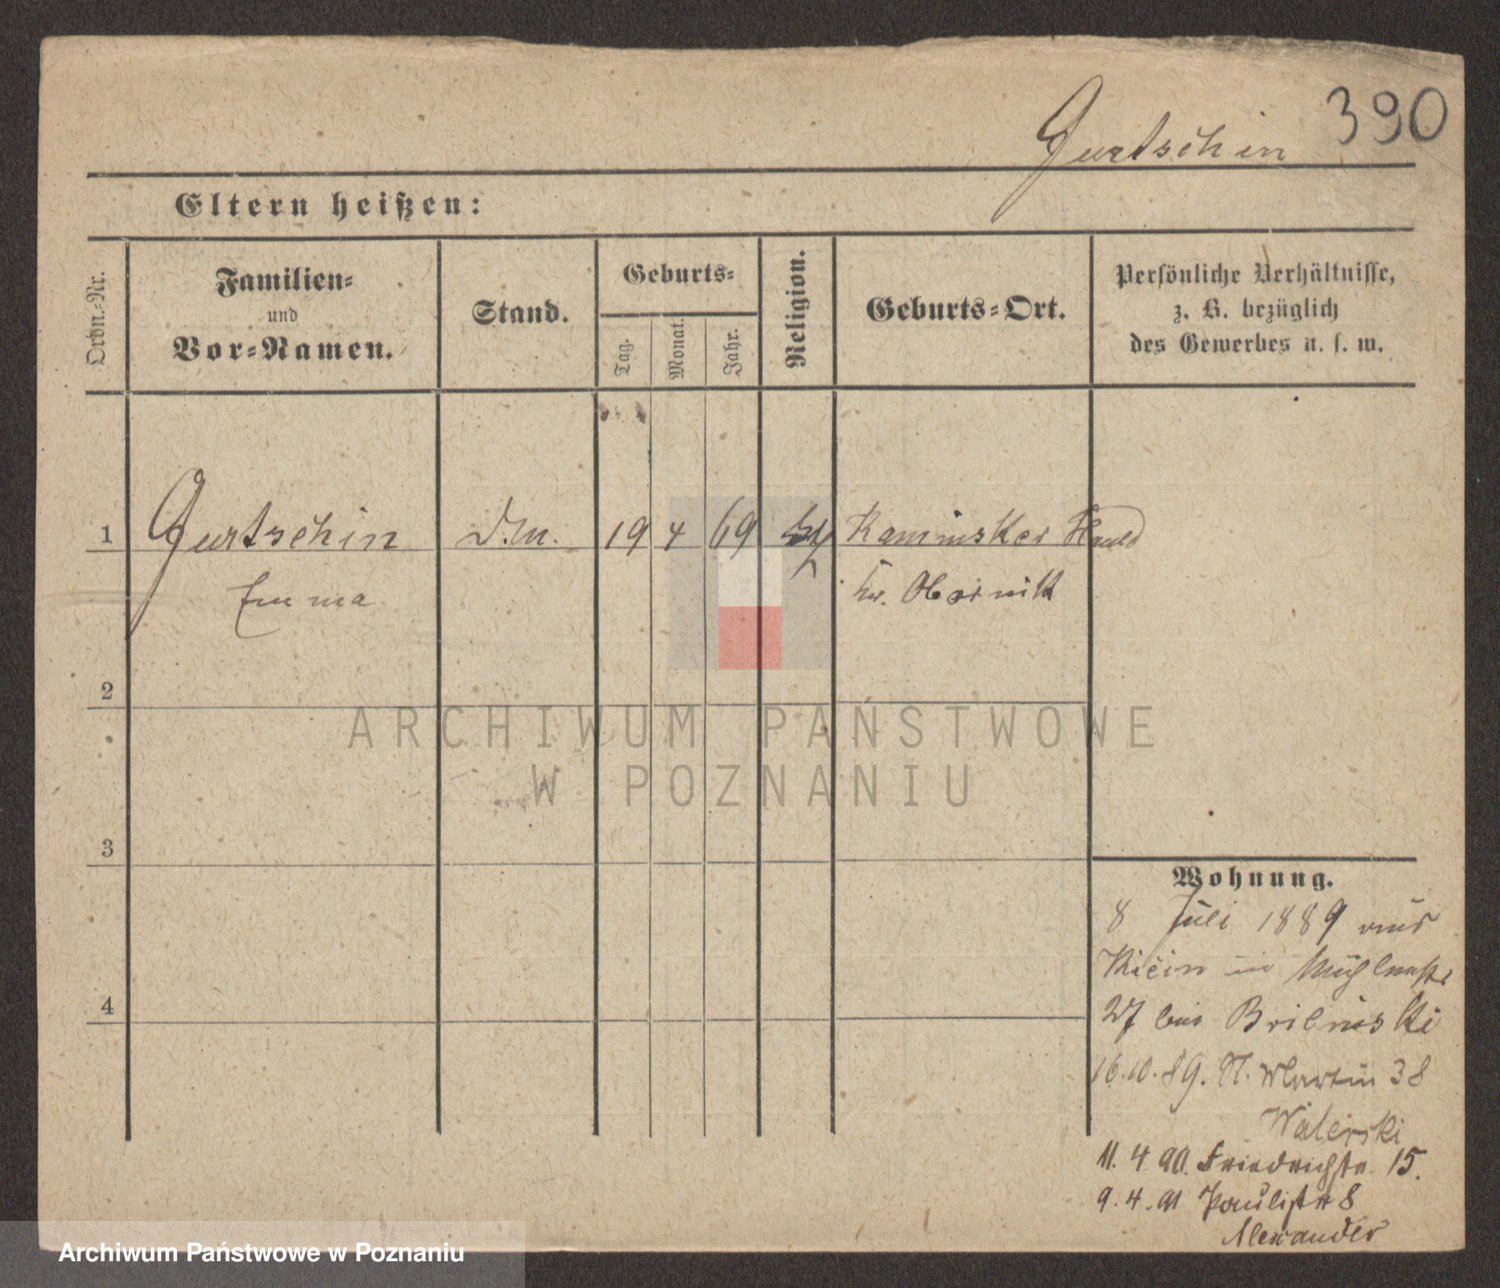 Gurtschin 390
Eltern heißen:
Ordn.-Nr.
Familien-
und
Vor-Namen.
Stand.
Geburts-
Tag.
Monat.
Jahr.
Religion.
Geburts-Ort.
Persönliche Verhältnisse,
z. B. bezüglich
des Gewerbes u. s. w.
1 Gurtschin D.M. 19 4 69 Kaminsker Hauld
Emma Kr. Obornik
2
3
4
Wohnung.
8 Juli 1889 aus
Kicin in Mühlenstr
27 bei
16.10.89. St. Martin 38
Walerski
11. 4 90. Friedrichstr. 15.
9. 4. 91 Paulistr 8
Alexander
ARCHIWUM PAŃSTWOWE
W POZNANIU
Archiwum Państwowe w Poznaniu